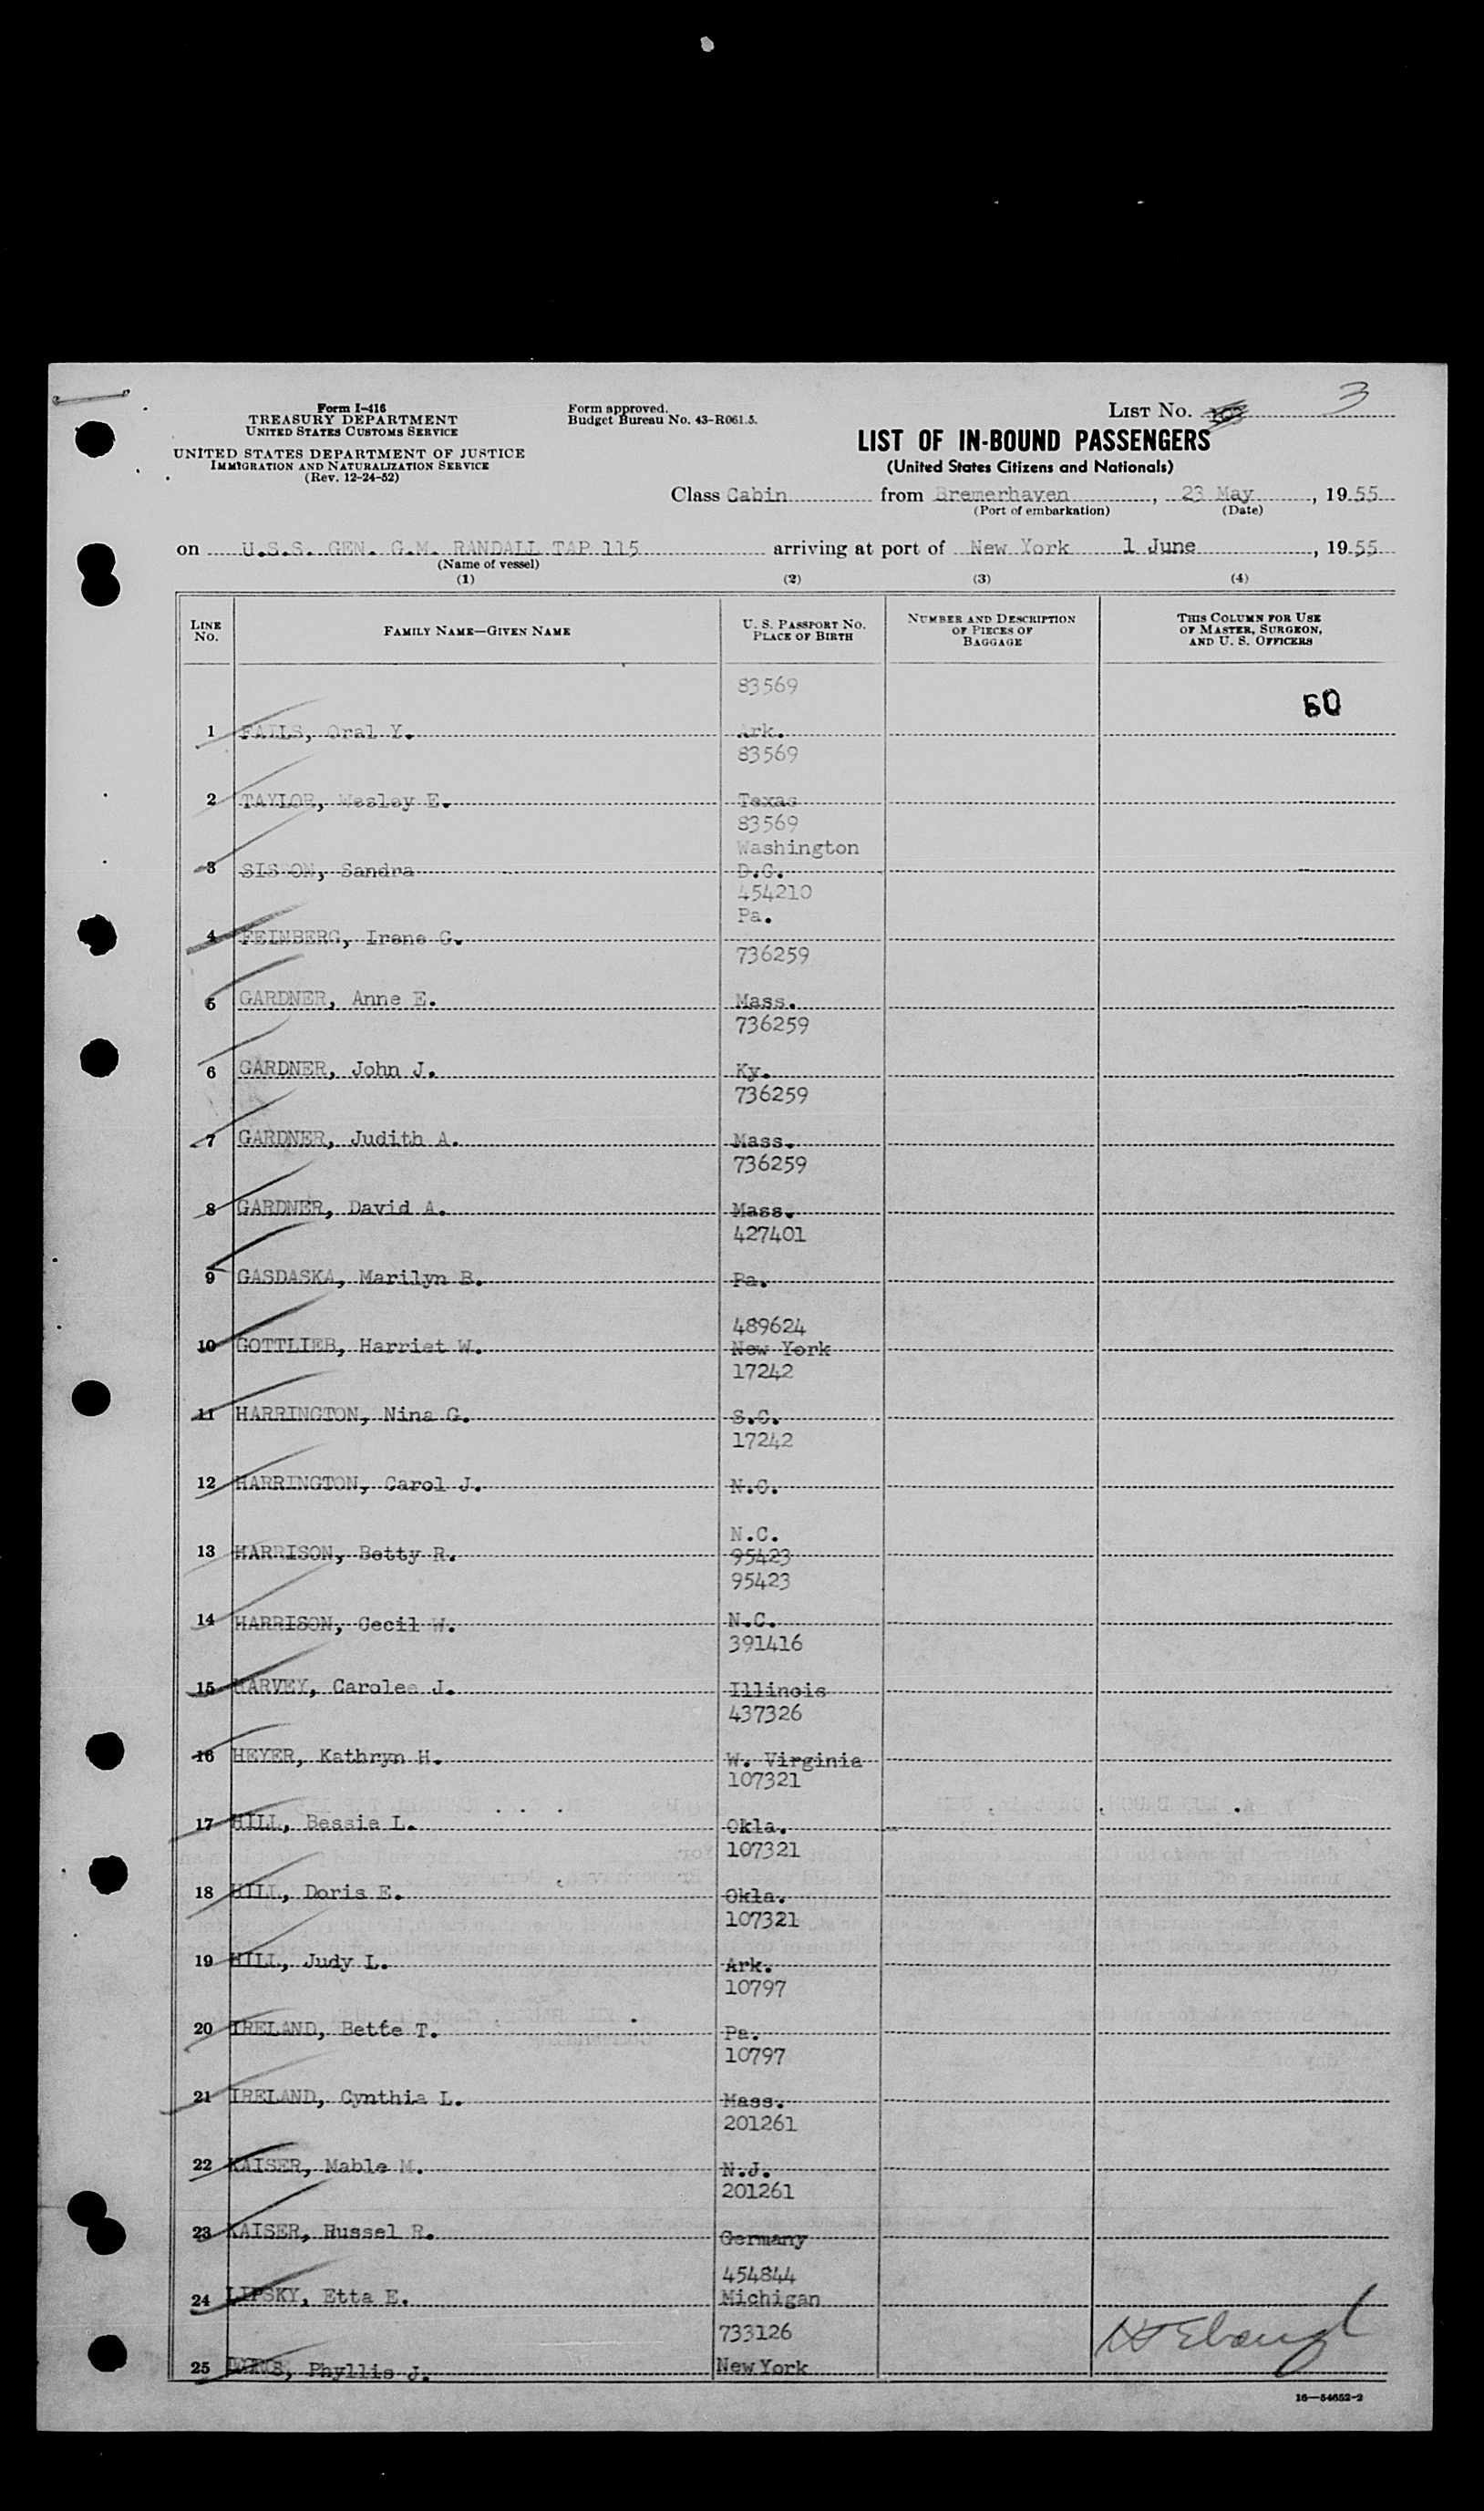 Form I-416
TREASURY DEPARTMENT
UNITED STATES CUSTOMS SERVICE
UNITED STATES DEPARTMENT OF JUSTICE
IMMIGRATION AND NATURALIZATION SERVICE
(Rev. 12-24-52)
Form approved.
Budget Bureau No. 43-R061.5.
LIST No. 3
LIST OF IN-BOUND PASSENGERS
(United States Citizens and Nationals)
Class Cabin from Bremerhaven, 23 May, 19 55
(Port of embarkation) (Date)
on U.S.S. GEN. G.M. RANDALL TAP 115 arriving at port of New York 1 June, 19 55
(Name of vessel)
(1) (2) (3) (4)
LINE No. FAMILY NAME—GIVEN NAME U. S. PASSPORT NO. PLACE OF BIRTH NUMBER AND DESCRIPTION OF PIECES OF BAGGAGE THIS COLUMN FOR USE OF MASTER, SURGEON, AND U. S. OFFICERS
83569
60
1 FAILS, Oral Y. Ark.
83569
2 TAYLOR, Wesley E. Texas
83569
Washington
3 SISSON, Sandra D.C.
454210
Pa.
4 FEINBERG, Irene G.
736259
5 GARDNER, Anne E. Mass.
736259
6 GARDNER, John J. Ky.
736259
7 GARDNER, Judith A. Mass.
736259
8 GARDNER, David A. Mass.
427401
9 GASDASKA, Marilyn B. Pa.
489624
10 GOTTLIEB, Harriet W. New York
17242
11 HARRINGTON, Nina G. S.C.
17242
12 HARRINGTON, Carol J. N.C.
N.C.
13 HARRISON, Betty R. 95423
95423
14 HARRISON, Cecil W. N.C.
391416
15 HARVEY, Carolee J. Illinois
437326
16 HEYER, Kathryn H. W. Virginia
107321
17 HILL, Bessie L. Okla.
107321
18 HILL, Doris E. Okla.
107321
19 HILL, Judy L. Ark.
10797
20 IRELAND, Bette T. Pa.
10797
21 IRELAND, Cynthia L. Mass.
201261
22 KAISER, Mable M. N.J.
201261
23 KAISER, Russel R. Germany
454844
24 LIPSKY, Etta E. Michigan
733126
25 Phyllis J. New York
16—54652-2